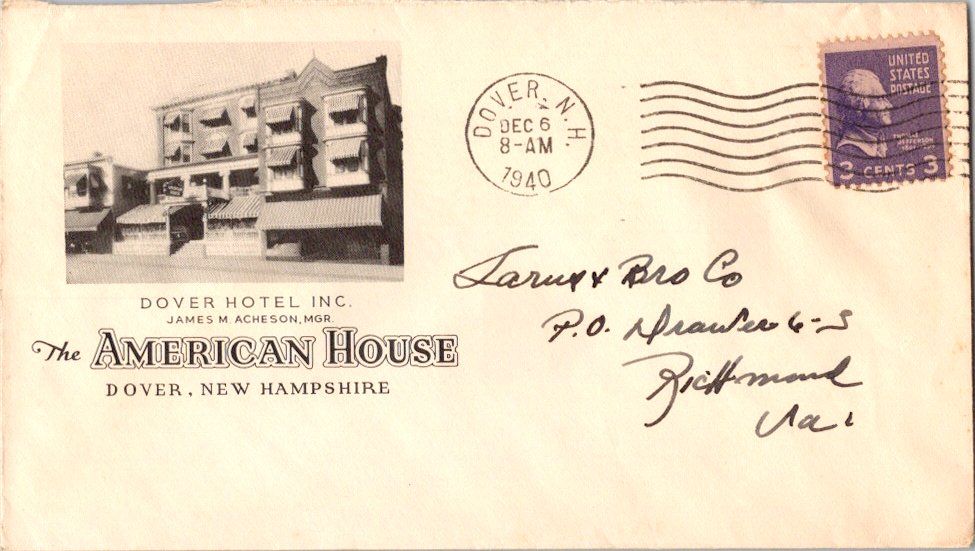 DOVER, N.H.
DEC 6
8-AM
1940
UNITED
STATES
POSTAGE
THOMAS
JEFFERSON
3 CENTS 3
DOVER HOTEL INC.
JAMES M. ACHESON, MGR.
The AMERICAN HOUSE
DOVER, NEW HAMPSHIRE
Larus & Bro Co
P.O. Drawer 6-S
Richmond
Va.